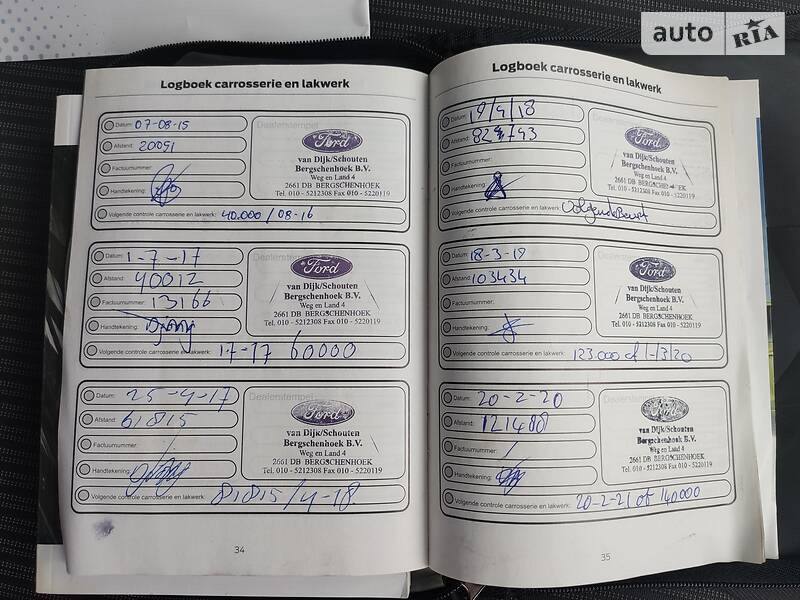 auto RIA
Logboek carrosserie en lakwerk
Datum: 07-08-15
Afstand: 20051
Factuurnummer:
Handtekening:
Dealerstempel
Ford
van Dijk/Schouten
Bergschenhoek B.V.
Weg en Land 4
2661 DB BERGSCHENHOEK
Tel. 010 - 5212308 Fax 010 - 5220119
Volgende controle carrosserie en lakwerk: 40.000 / 08-16
Datum: 1-7-17
Afstand: 40012
Factuurnummer: 13166
Handtekening:
Dealerstempel
Ford
van Dijk/Schouten
Bergschenhoek B.V.
Weg en Land 4
2661 DB BERGSCHENHOEK
Tel. 010 - 5212308 Fax 010 - 5220119
Volgende controle carrosserie en lakwerk: 17-17 60000
Datum: 25-4-17
Afstand: 61815
Factuurnummer:
Handtekening:
Dealerstempel
Ford
van Dijk/Schouten
Bergschenhoek B.V.
Weg en Land 4
2661 DB BERGSCHENHOEK
Tel. 010 - 5212308 Fax 010 - 5220119
Volgende controle carrosserie en lakwerk: 81815/4-18
34
Logboek carrosserie en lakwerk
Datum: 19/4/18
Afstand:
Factuurnummer:
Handtekening:
Dealerstempel
Ford
van Dijk/Schouten
Bergschenhoek B.V.
Weg en Land 4
2661 DB BERGSCHENHOEK
Tel. 010 - 5212308 Fax 010 - 5220119
Volgende controle carrosserie en lakwerk: Volgende Beurt
Datum: 18-3-19
Afstand: 103434
Factuurnummer:
Handtekening:
Dealerstempel
Ford
van Dijk/Schouten
Bergschenhoek B.V.
Weg en Land 4
2661 DB BERGSCHENHOEK
Tel. 010 - 5212308 Fax 010 - 5220119
Volgende controle carrosserie en lakwerk: 123.000 of 1-13/20
Datum: 20-2-20
Afstand: 121488
Factuurnummer:
Handtekening:
Dealerstempel
Ford
van Dijk/Schouten
Bergschenhoek B.V.
Weg en Land 4
2661 DB BERGSCHENHOEK
Tel. 010 - 5212308 Fax 010 - 5220119
Volgende controle carrosserie en lakwerk: 20-2-21 of 140000
35